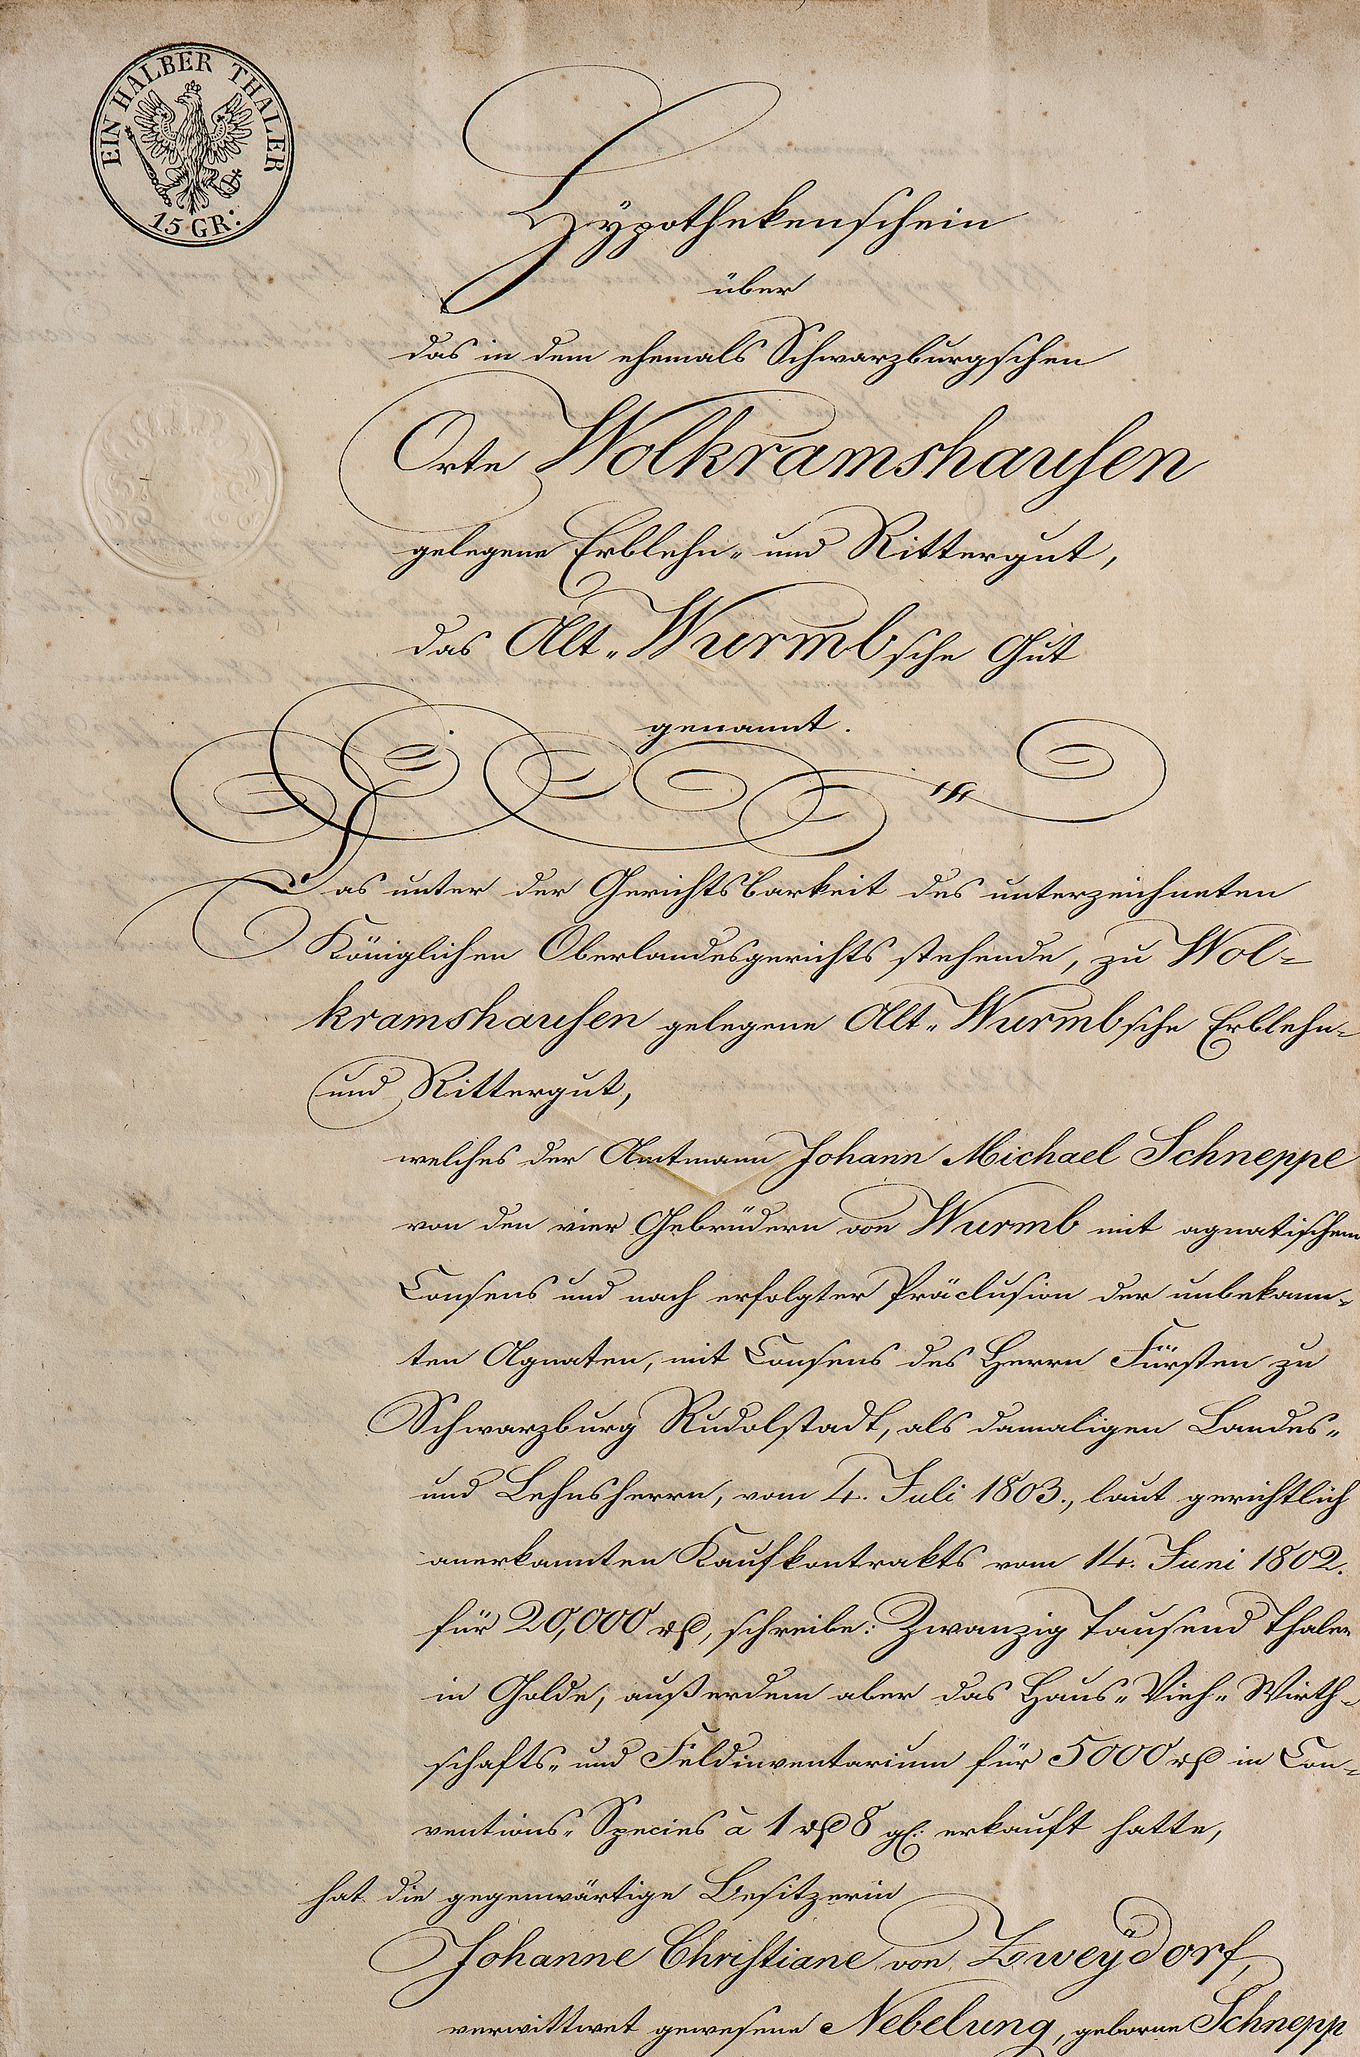 EIN HALBER THALER
15 GR:
Hÿpothekenschein
über
das in dem ehemals Schwarzburgschen
Orte Wolkramshausen
gelegene Erblehn- und Rittergut,
das Alt-Wurmbsche Gut
genannt.
Das unter der Gerichtsbarkeit des unterzeichneten
Königlichen Oberlandesgerichts stehende, zu Wol-
kramshausen gelegene Alt-Wurmbsche Erblehn-
und Rittergut,
welches der Amtmann Johann Michael Schneppe
von den vier Gebrüdern von Wurmb mit agnatischem
Consens und nach erfolgter Präclusion der unbekann-
ten Agnaten, mit Consens des Herrn Fürsten zu
Schwarzburg Rudolstadt, als damaligen Landes-
und Lehnsherrn, vom 4. Juli 1803., laut gerichtlich
anerkannten Kaufkontrakts vom 14. Juni 1802.
für 20,000 rß, schreibe: Zwanzig Tausend Thaler
in Golde, außerdem aber das Haus- Vieh- Wirth-
schafts- und Feldinventarium für 5000 rß in Con-
ventions- Species à 1 rß 8 gl: erkauft hatte,
hat die gegenwärtige Besitzerin
Johanne Christiane von Zweÿdorf,
verwittwet gewesene Nebelung, geborne Schnepp